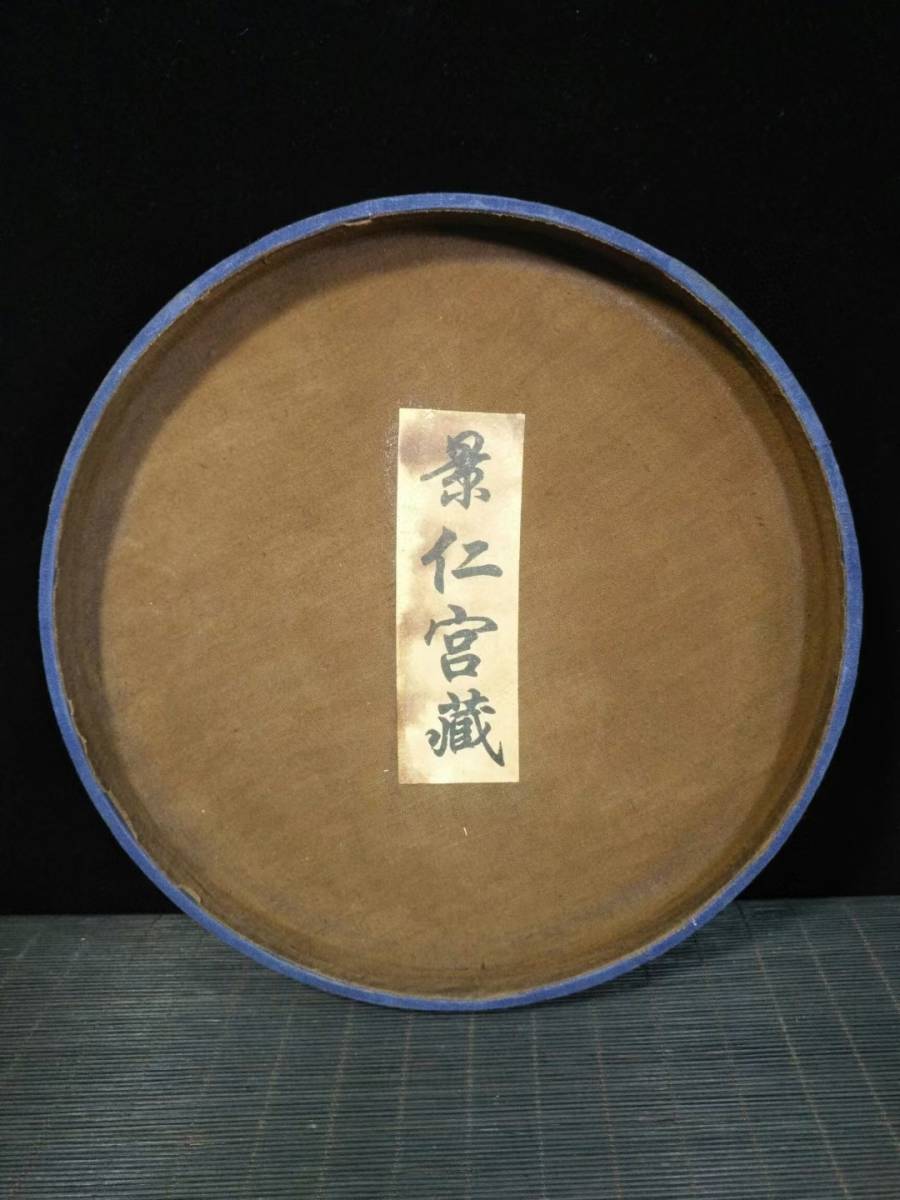 景仁宮藏